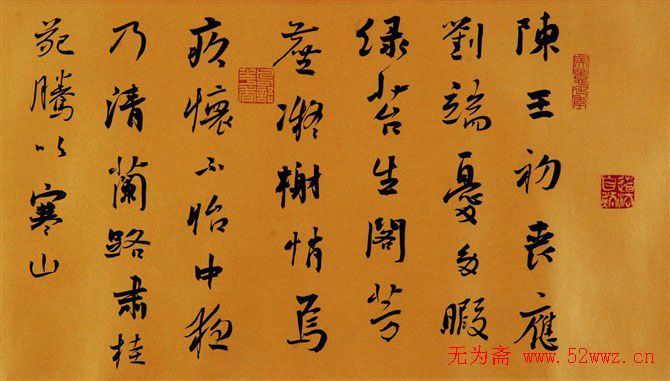 陳王初喪應
劉端憂多暇
綠苔生閣芳
塵凝榭悄焉
疚懷不怡中夜
乃清蘭路肅桂
苑騰吹寒山
道法自然
无为斋 www.52wwz.cn